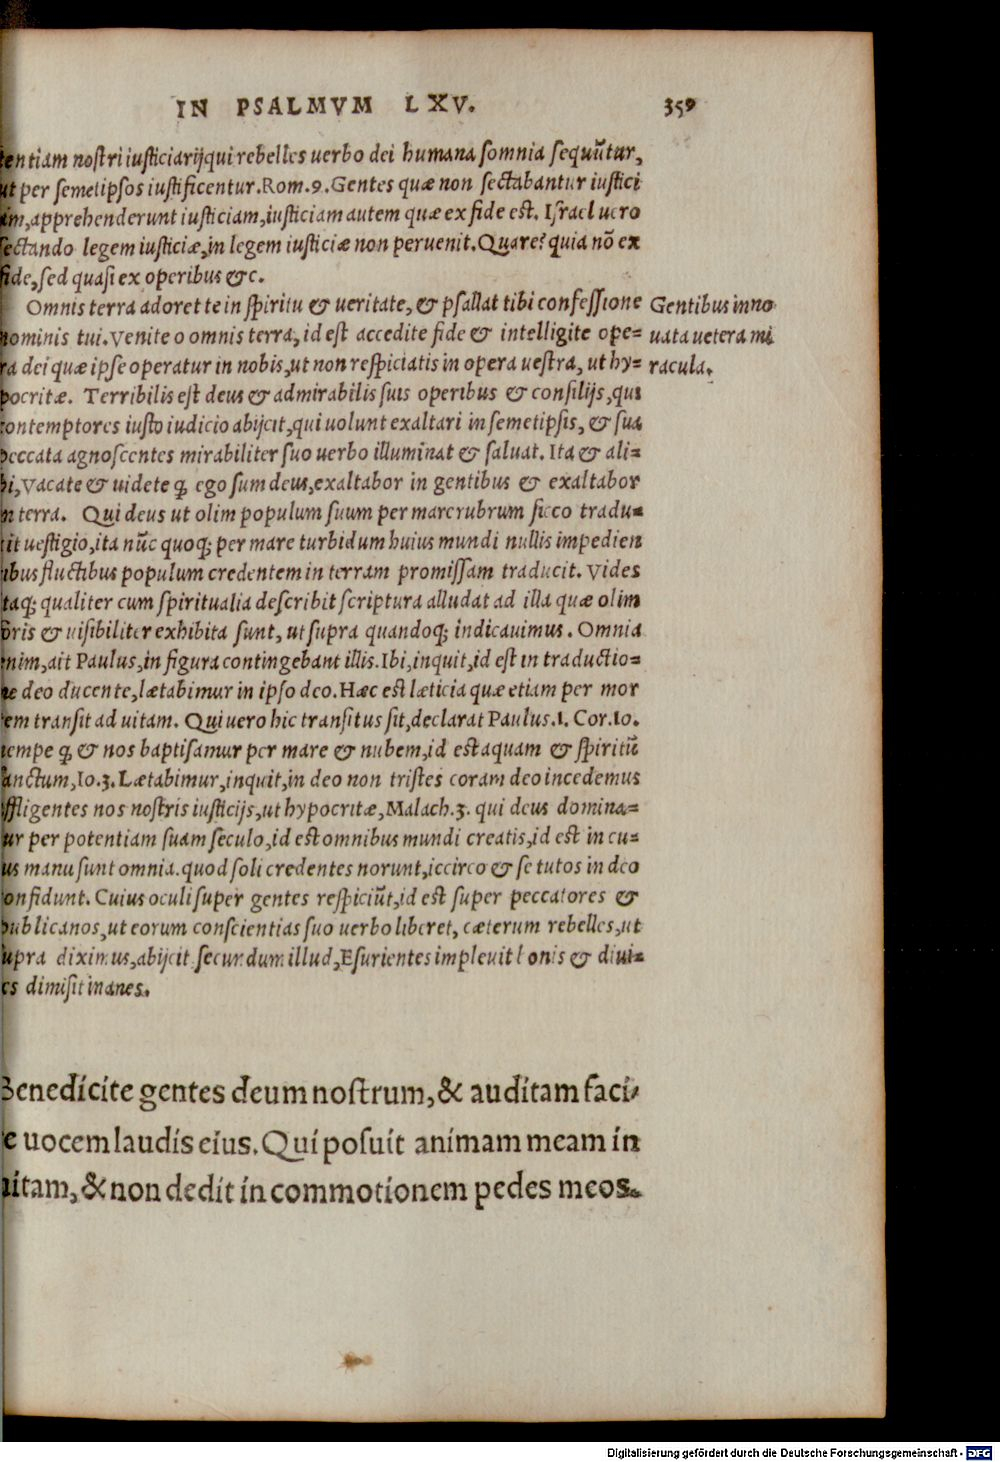 IN PSALMVM LXV. 359
tentiam nostri iusticiarij qui rebelles uerbo dei humana somnia sequũtur,
ut per semetipsos iustificentur. Rom. 9. Gentes quæ non sectabantur iustici
am, apprehenderunt iusticiam, iusticiam autem quæ ex fide est. Israel uero
sectando legem iusticiæ, in legem iusticiæ non peruenit. Quare? quia nõ ex
fide, sed quasi ex operibus &c.
Omnis terra adoret te in spiritu & ueritate, & psallat tibi confessione
nominis tui. Venite o omnis terra, id est accedite fide & intelligite ope=
ra dei quæ ipse operatur in nobis, ut non respiciatis in opera uestra, ut hy=
pocritæ. Terribilis est deus & admirabilis suis operibus & consilijs, qui
contemptores iusto iudicio abijcit, qui uolunt exaltari in semetipsis, & sua
peccata agnoscentes mirabiliter suo uerbo illuminat & saluat. Ita & ali=
bi, Vacate & uidete q̃ ego sum deus, exaltabor in gentibus & exaltabor
in terra. Qui deus ut olim populum suum per mare rubrum sicco tradu=
cit uestigio, ita nũc quoq; per mare turbidum huius mundi nullis impedien
tibus fluctibus populum credentem in terram promissam traducit. Vides
itaq; qualiter cum spiritualia describit scriptura alludat ad illa quæ olim
foris & uisibiliter exhibita sunt, ut supra quandoq; indicauimus. Omnia
enim, ait Paulus, in figura contingebant illis. Ibi, inquit, id est in traductio=
ne deo ducente, lætabimur in ipso deo. Hæc est læticia quæ etiam per mor
tem transit ad uitam. Qui uero hic transitus sit, declarat Paulus. 1. Cor. 10.
nempe q̃ & nos baptisamur per mare & nubem, id est aquam & spiritũ
sanctum, Io. 3. Lætabimur, inquit, in deo non tristes coram deo incedemus
affligentes nos nostris iusticijs, ut hypocritæ, Malach. 3. qui deus domina=
tur per potentiam suam seculo, id est omnibus mundi creatis, id est in cu=
ius manu sunt omnia. quod soli credentes norunt, iccirco & se tutos in deo
confidunt. Cuius oculi super gentes respiciũt, id est super peccatores &
publicanos, ut eorum conscientias suo uerbo liberet, cæterum rebelles, ut
supra diximus, abijcit secundum illud, Esurientes impleuit bonis & diui=
tes dimisit inanes.
Gentibus inno
uata uetera mi
racula.
Benedicite gentes deum nostrum, & auditam faci-
te uocem laudis eius. Qui posuit animam meam in
uitam, & non dedit in commotionem pedes meos.
Digitalisierung gefördert durch die Deutsche Forschungsgemeinschaft - DFG